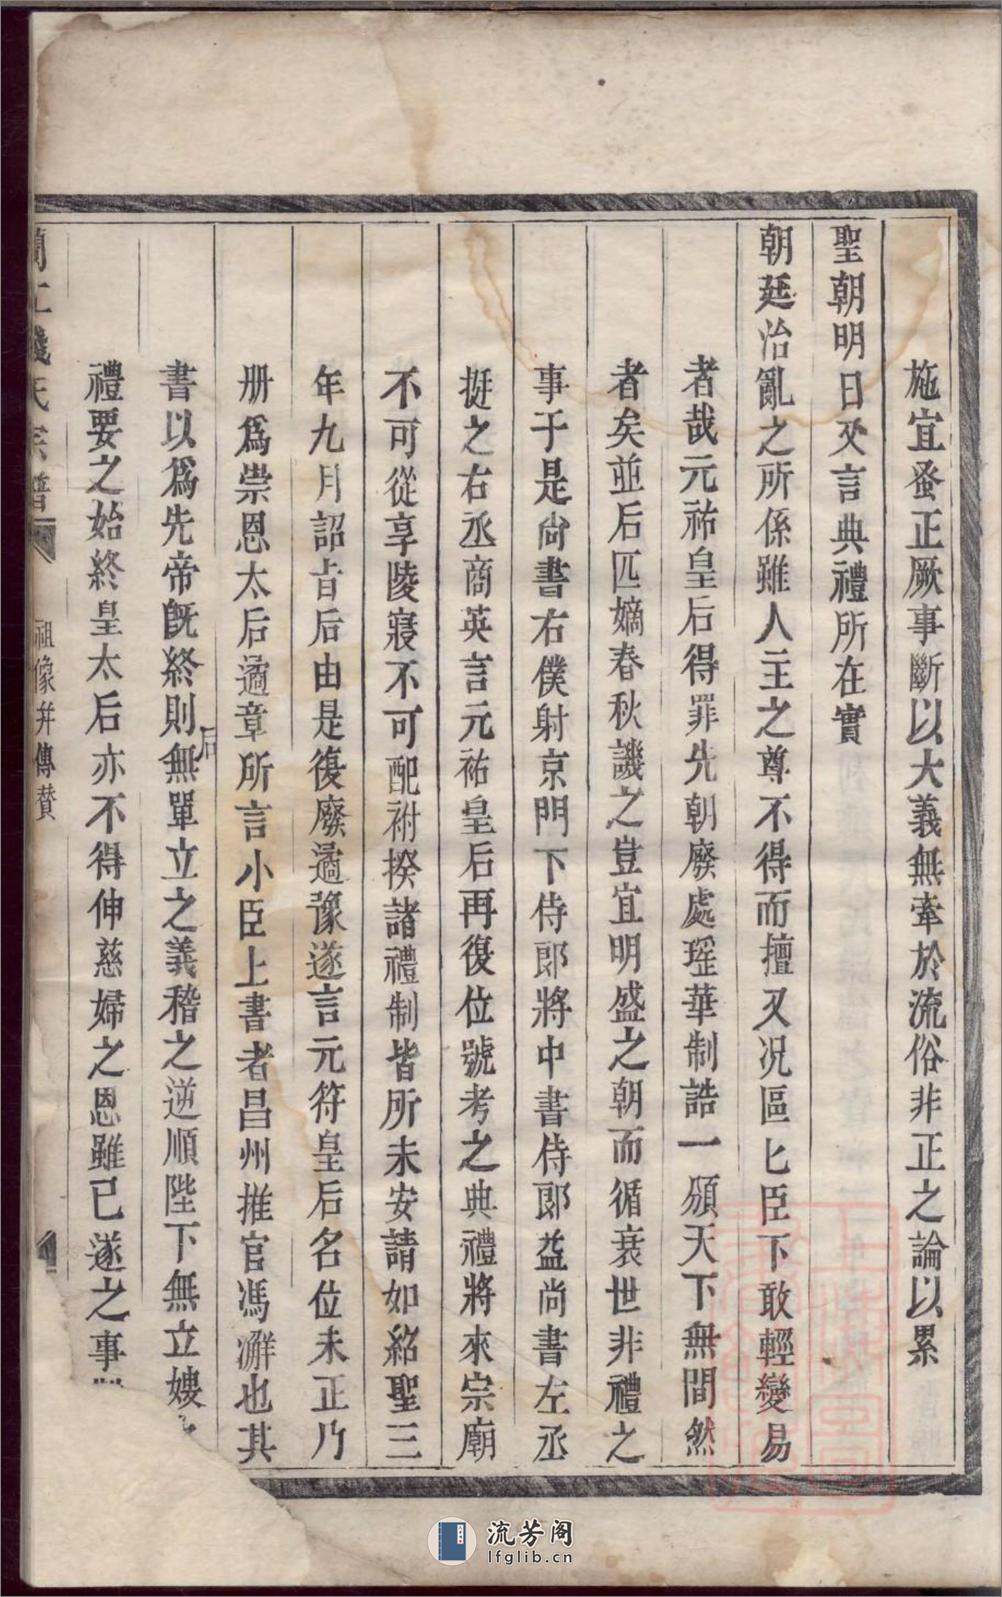 施宜蚤正厥事斷以大義無牽於流俗非正之論以累
聖朝明日又言典禮所在實
朝廷治亂之所係雖人主之尊不得而擅又况區匕臣下敢輕變易
者哉元祐皇后得罪先朝廢處瑶華制誥一頒天下無間然
者矣並后匹嫡春秋譏之豈宜明盛之朝而循衰世非禮之
事于是尚書右僕射京門下侍郎將中書侍郎益尚書左丞
挺之右丞商英言元祐皇后再復位號考之典禮將來宗廟
不可從享陵寢不可配祔揆諸禮制皆所未安請如紹聖三
年九月詔旨后由是復廢遹豫遂言元符皇后名位未正乃
册爲崇恩太后遹章所言小臣上書者昌州推官馮澥也其
書以爲先帝旣終則無單立之義稽之逆順陛下無立嫂
后
禮要之始終皇太后亦不得伸慈婦之恩雖已遂之事
氏宗譜
祖像并傳贊
流芳阁
lfglib.cn